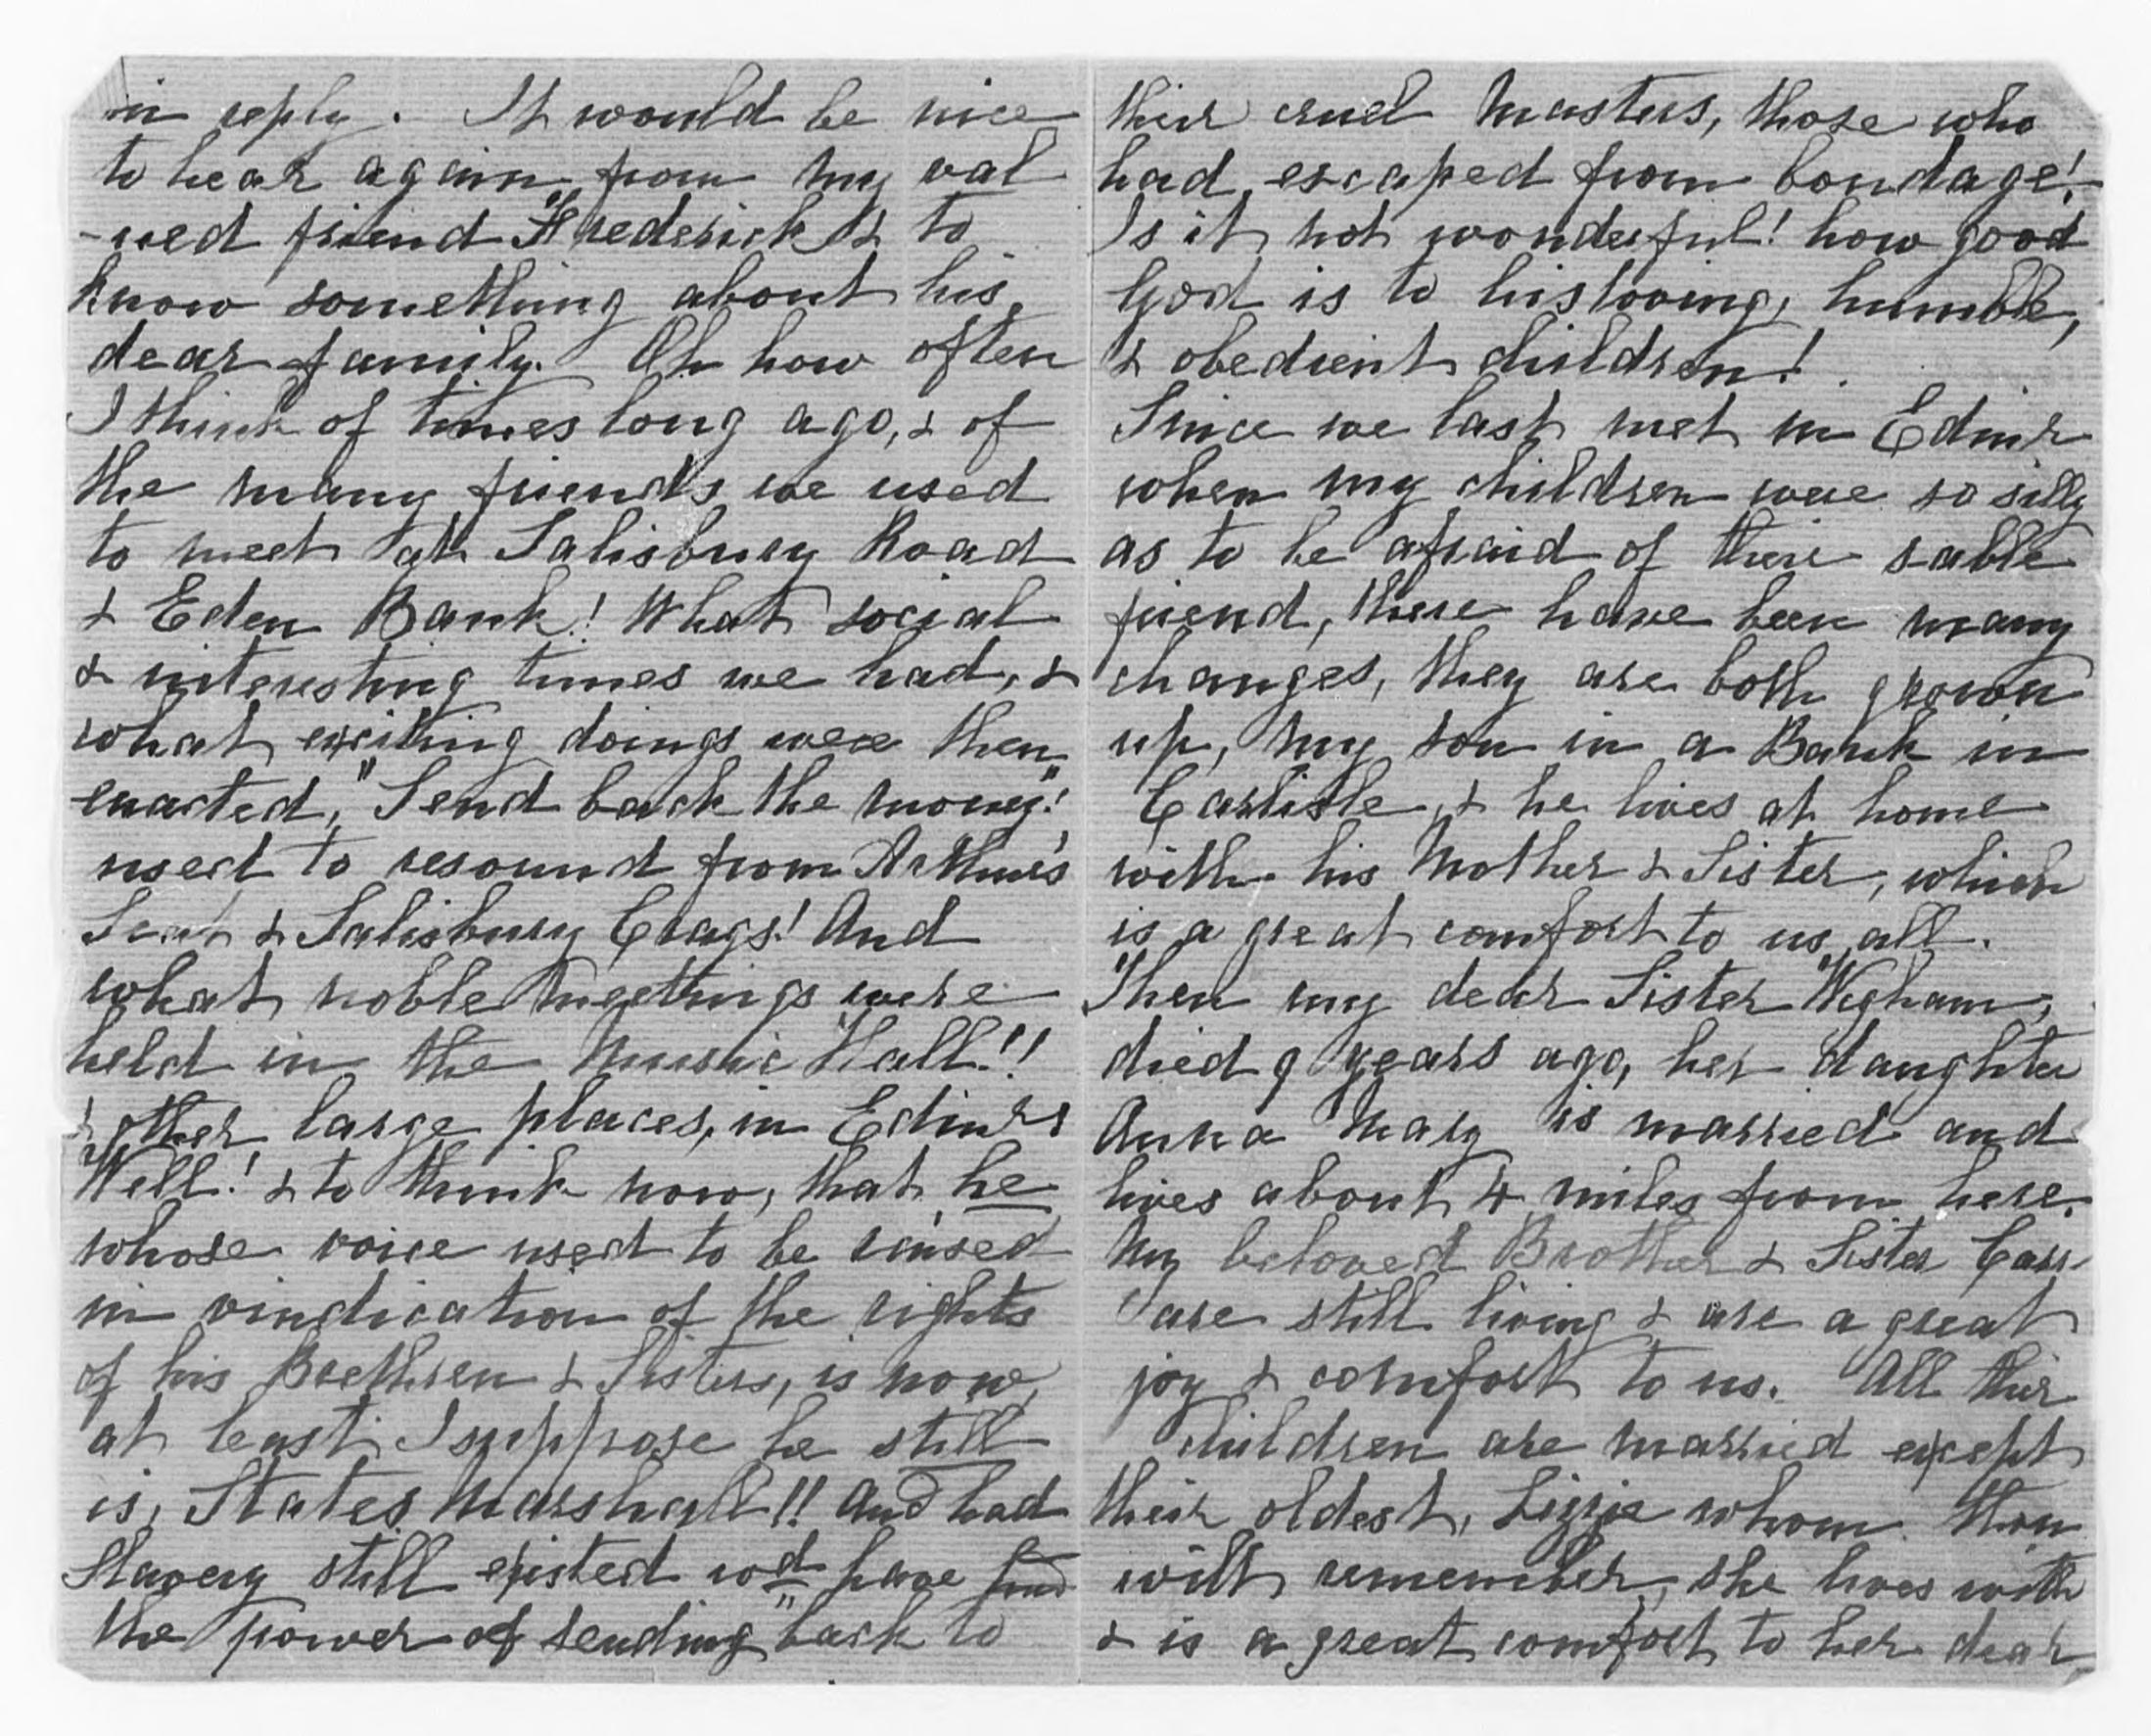 in reply. It would be nice
to hear again from my val
-ued friend "Frederick" & to
know something about his
dear family. Oh how often
I think of times long ago, & of
the many friends we used
to meet at Salisbury Road
& Eden Bank! What social
& interesting times we had, &
what exciting doings were then
enacted, "Send back the money!"
used to resound from Arthur's
Seat & Salisbury Crags! And
what noble meetings were
held in the Music Hall!!
& other large places, in Edinr
Well! & to think now, that he
whose voice used to be raised
in vindication of the rights
of his Brethren & Sisters, is now,
at least I suppose he still
is, States Marshall!! And had
Slavery still existed wod have had
the power of "sending back to
their cruel Masters, those who
had escaped from bondage!
Is it not wonderful! how good
God is to his loving, humble,
& obedient children!
Since we last met in Edinr
when my children were so silly
as to be afraid of their sable
friend, there have been many
changes, they are both grown
up, my son in a Bank in
Carlisle, & he lives at home
with his Mother & Sister, which
is a great comfort to us all.
Then my dear Sister Wigham,
died 9 years ago, her daughter
Anna Mary is married and
lives about 4 miles from here.
My beloved Brother & Sister Carr
are still living & are a great
joy & comfort to us. All their
children are married except
their oldest, Lizzie whom thou
will remember, she lives with
& is a great comfort to her dear